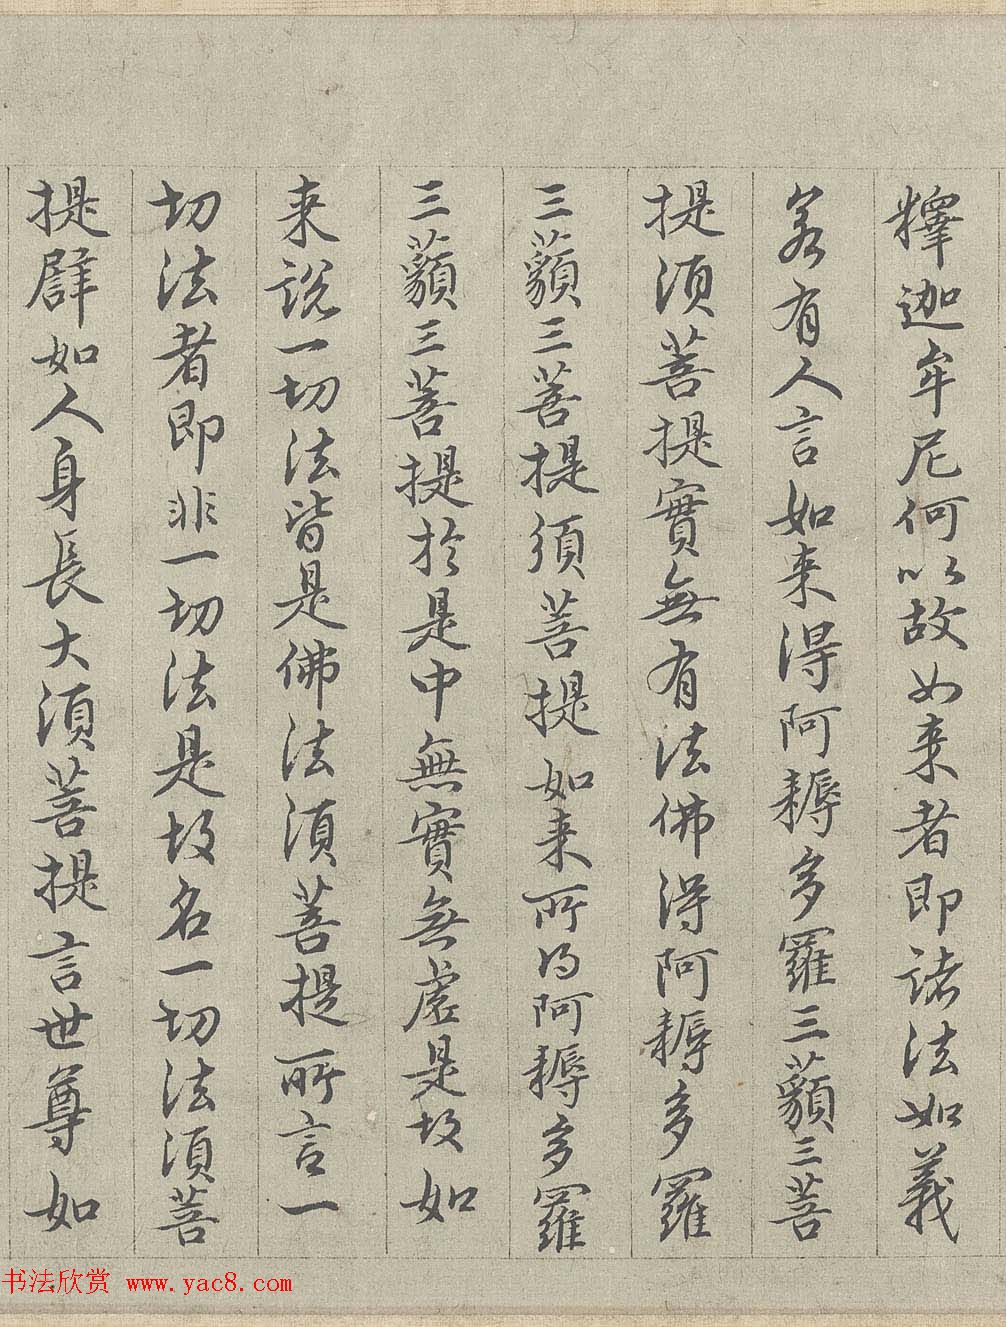 釋迦牟尼何以故如来者即諸法如義
若有人言如来得阿耨多羅三藐三菩
提須菩提實無有法佛得阿耨多羅
三藐三菩提須菩提如来所得阿耨多羅
三藐三菩提於是中無實無虚是故如
来説一切法皆是佛法須菩提所言一
切法者即非一切法是故名一切法須菩
提譬如人身長大須菩提言世尊如
书法欣赏 www.yac8.com